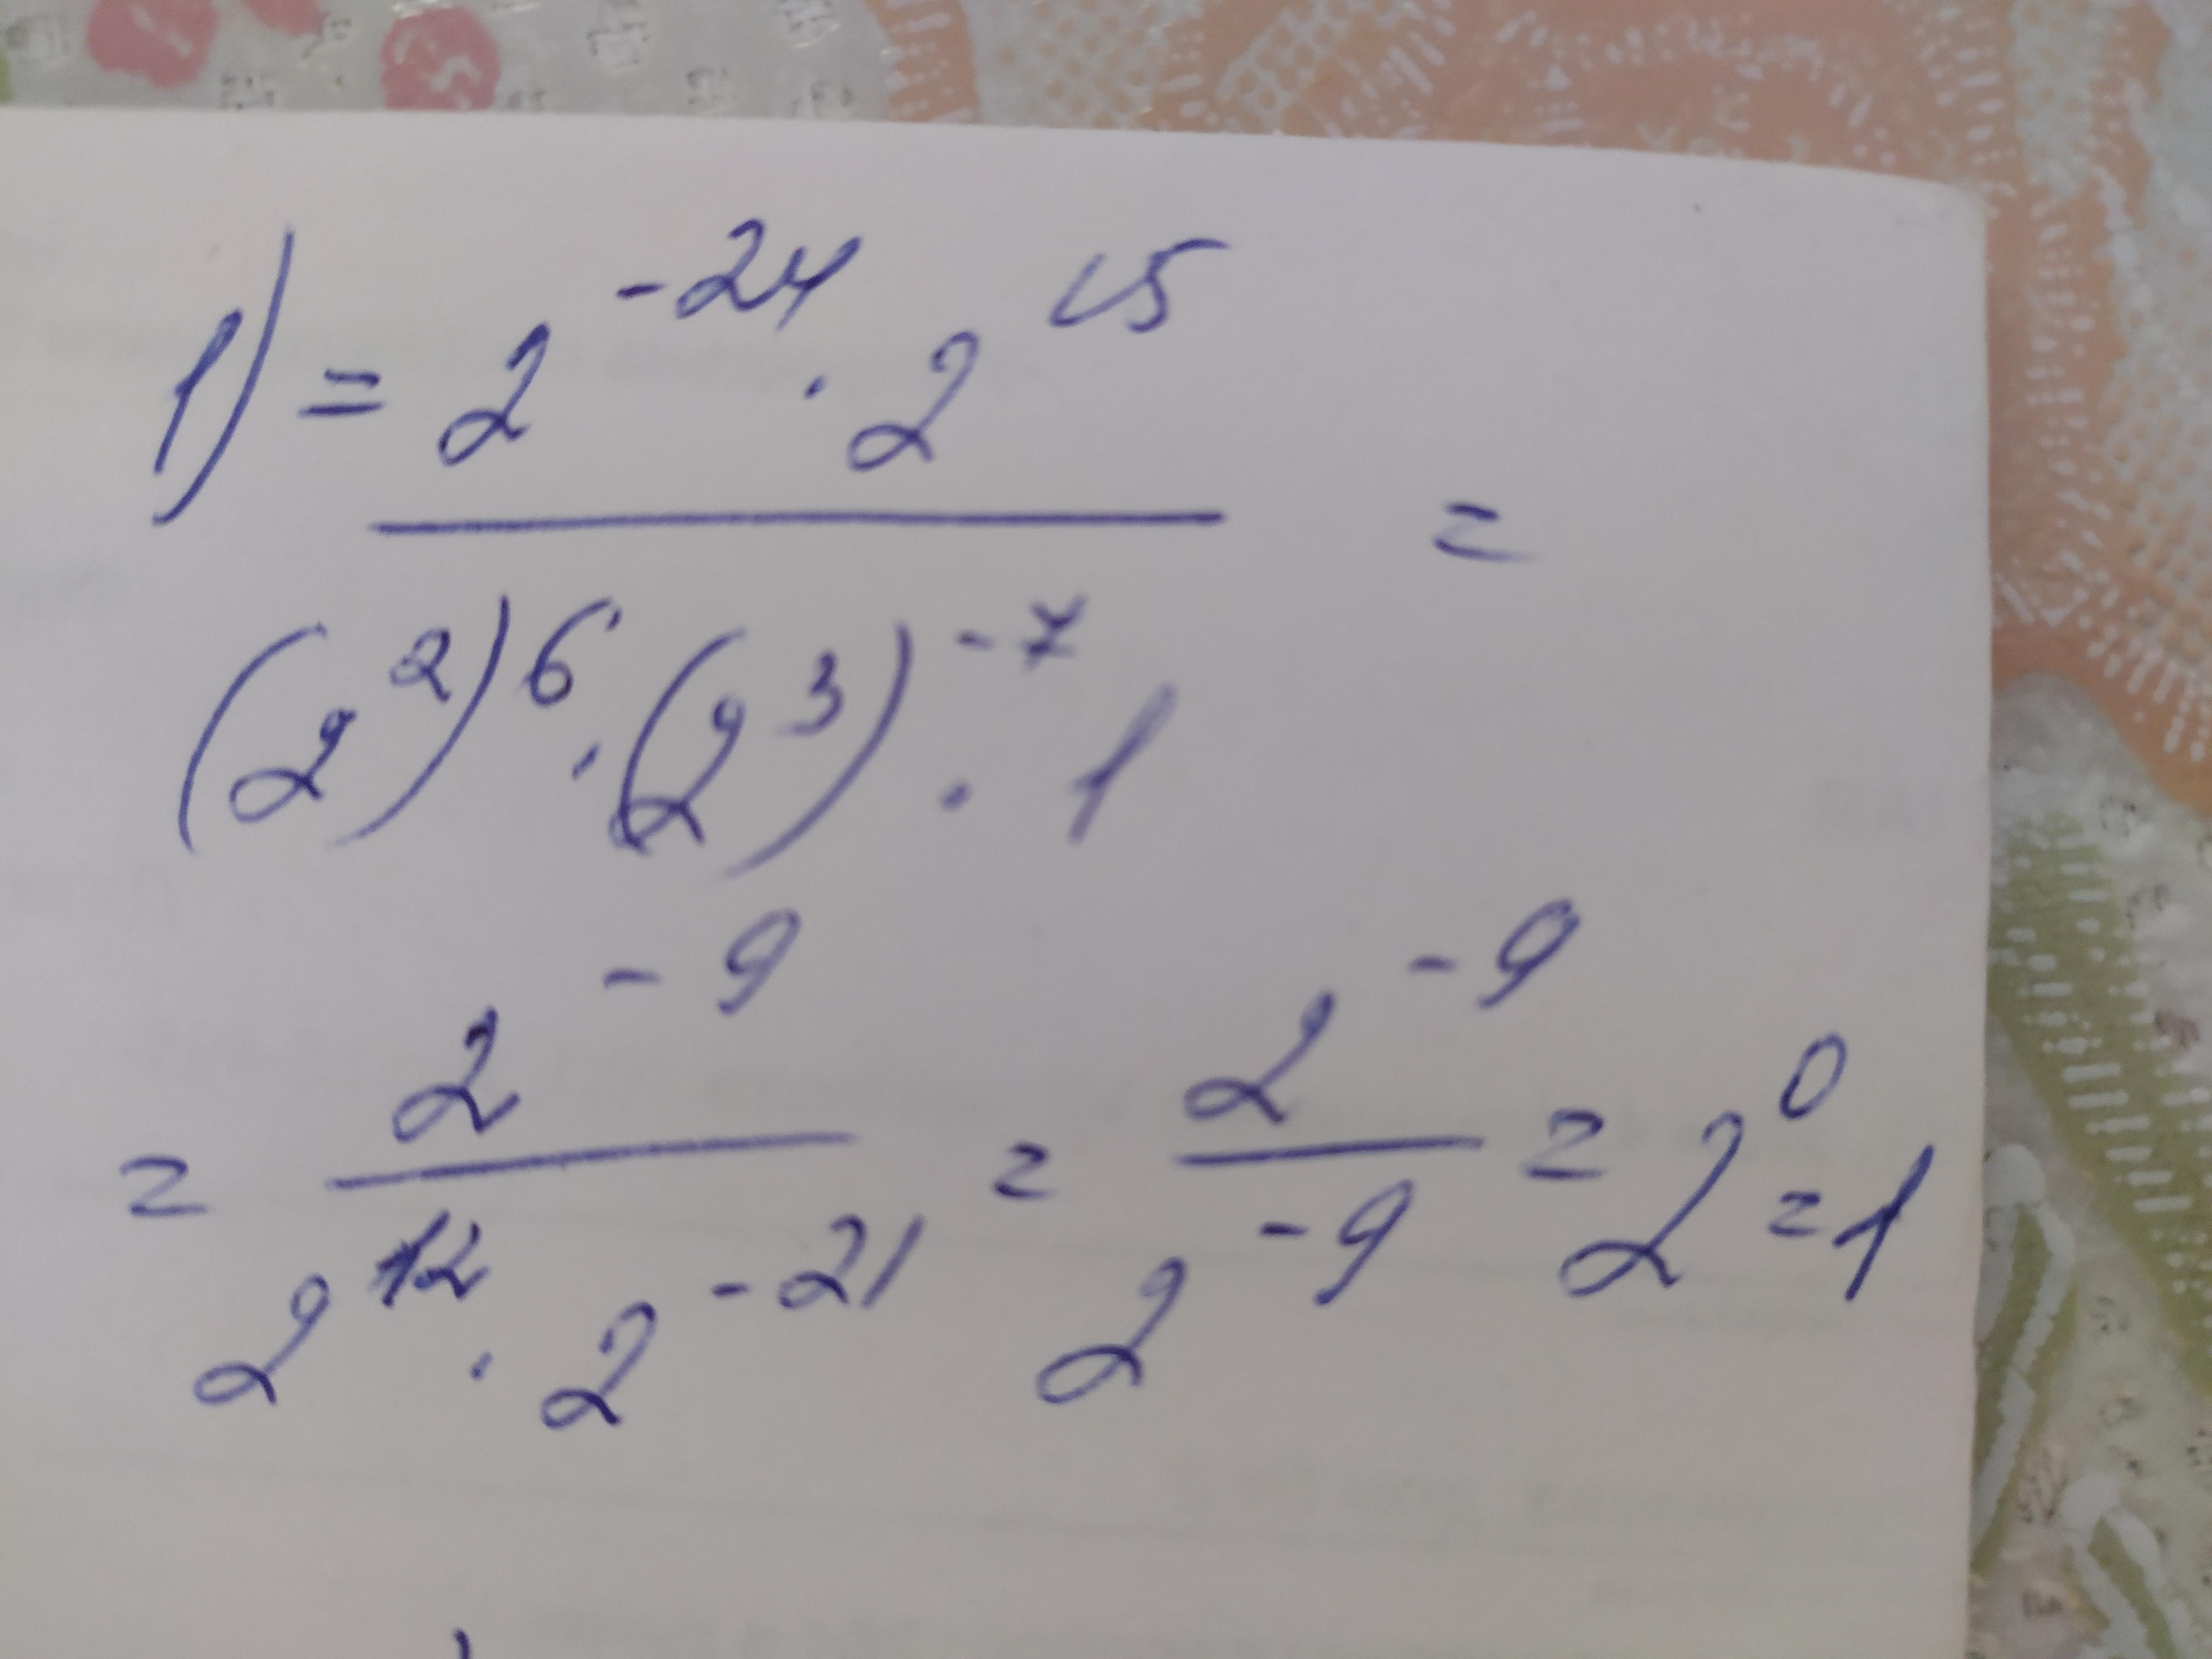 1) = 2^-24 · 2^15
(2^2)^6 · (2^3)^-7 · 1 =
= 2^-9 / 2^12 · 2^-21 = 2^-9 / 2^-9 = 2^0 = 1